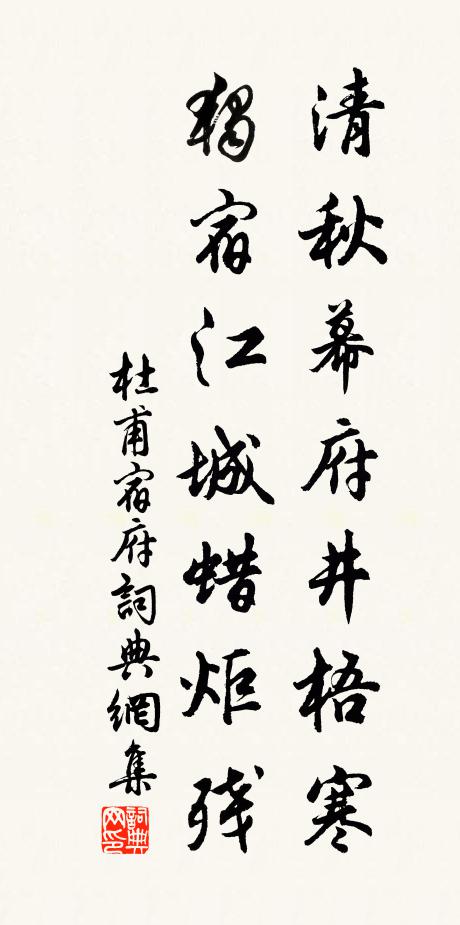 清秋幕府井梧寒
獨宿江城蜡炬残
杜甫宿府詞典網集
詞典网印